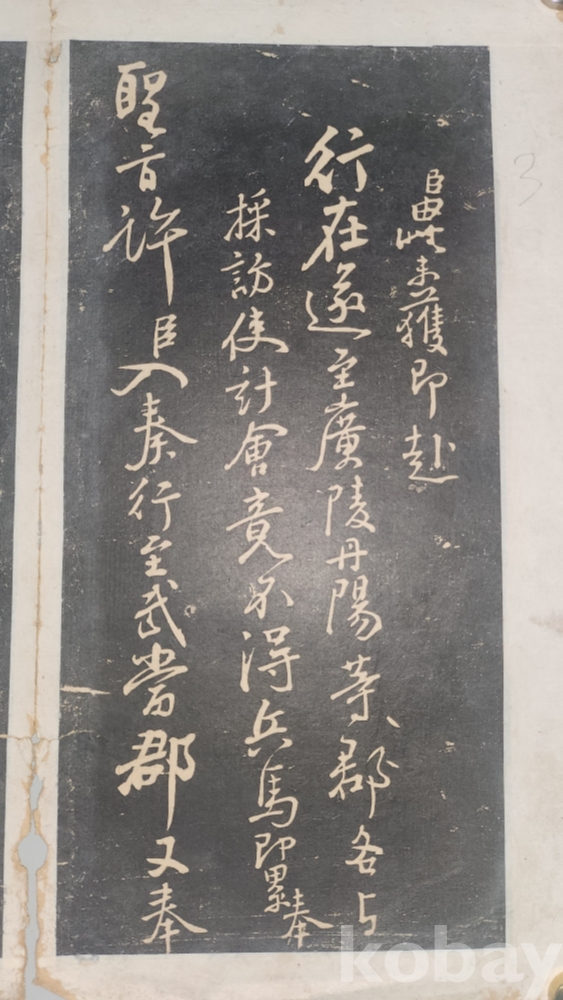 臣由此未獲即赴
行在遂至廣陵丹陽等郡各与
採訪使計會竟不得兵馬即累奉
聖旨許臣入奏行至武當郡又奉
3
kobay